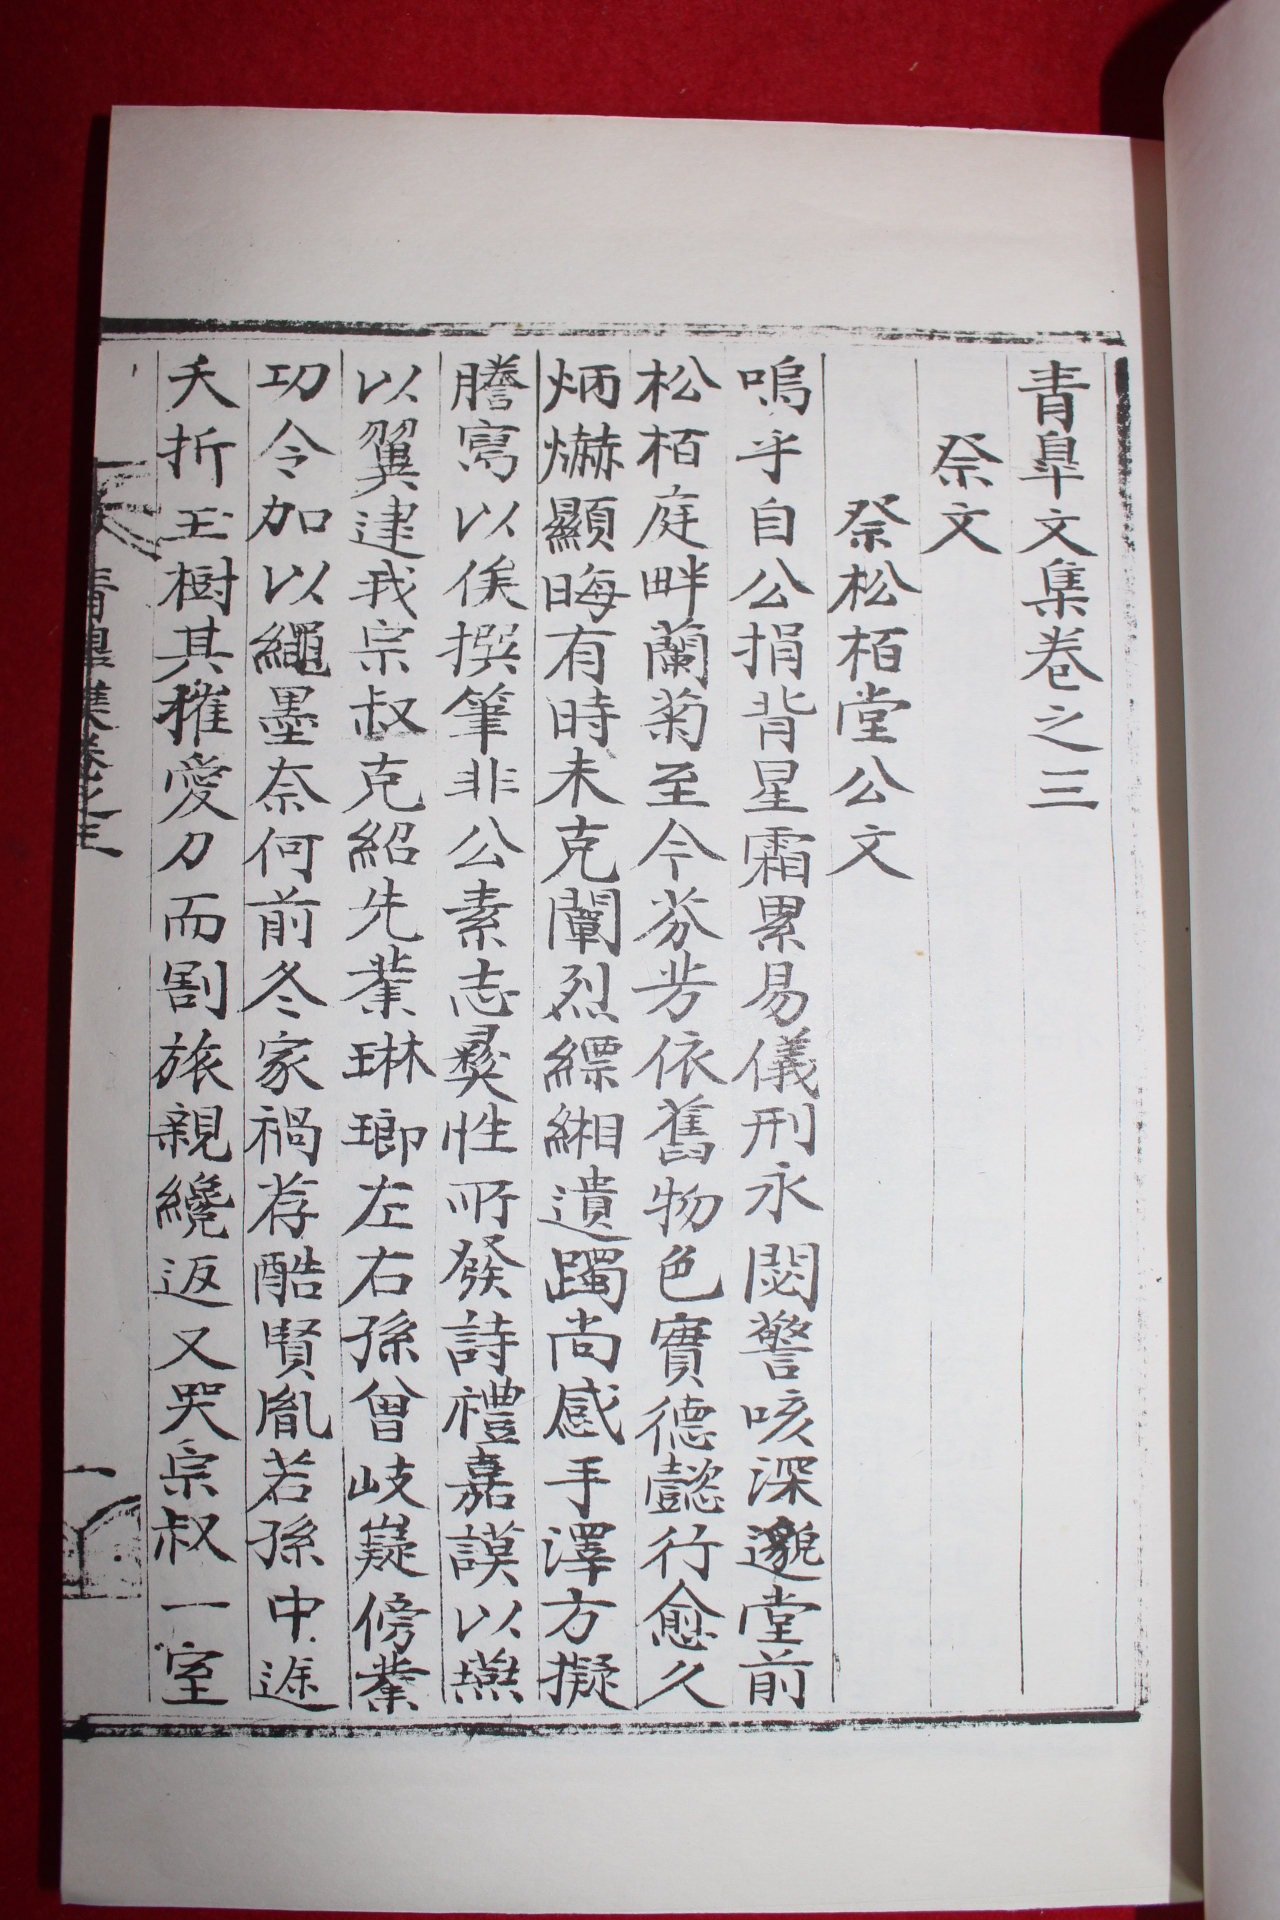 青皐文集卷之三
祭文
祭松栢堂公文
嗚乎自公捐背星霜累易儀刑永閟警咳深邈堂前
松栢庭畔蘭菊至今芬芳依舊物色實德懿行愈久
炳爀顯晦有時未克闡烈縹緗遺躅尚感手澤方擬
謄寫以俟撰筆非公素志彛性所發詩禮嘉謨以燕
以翼逮我宗叔克紹先業琳瑯左右孫曾岐嶷傍業
功令加以繩墨奈何前冬家禍荐酷賢胤若孫中途
夭折玉樹其摧愛刀而割旅親纔返又哭宗叔一室
青皐集卷之三
一